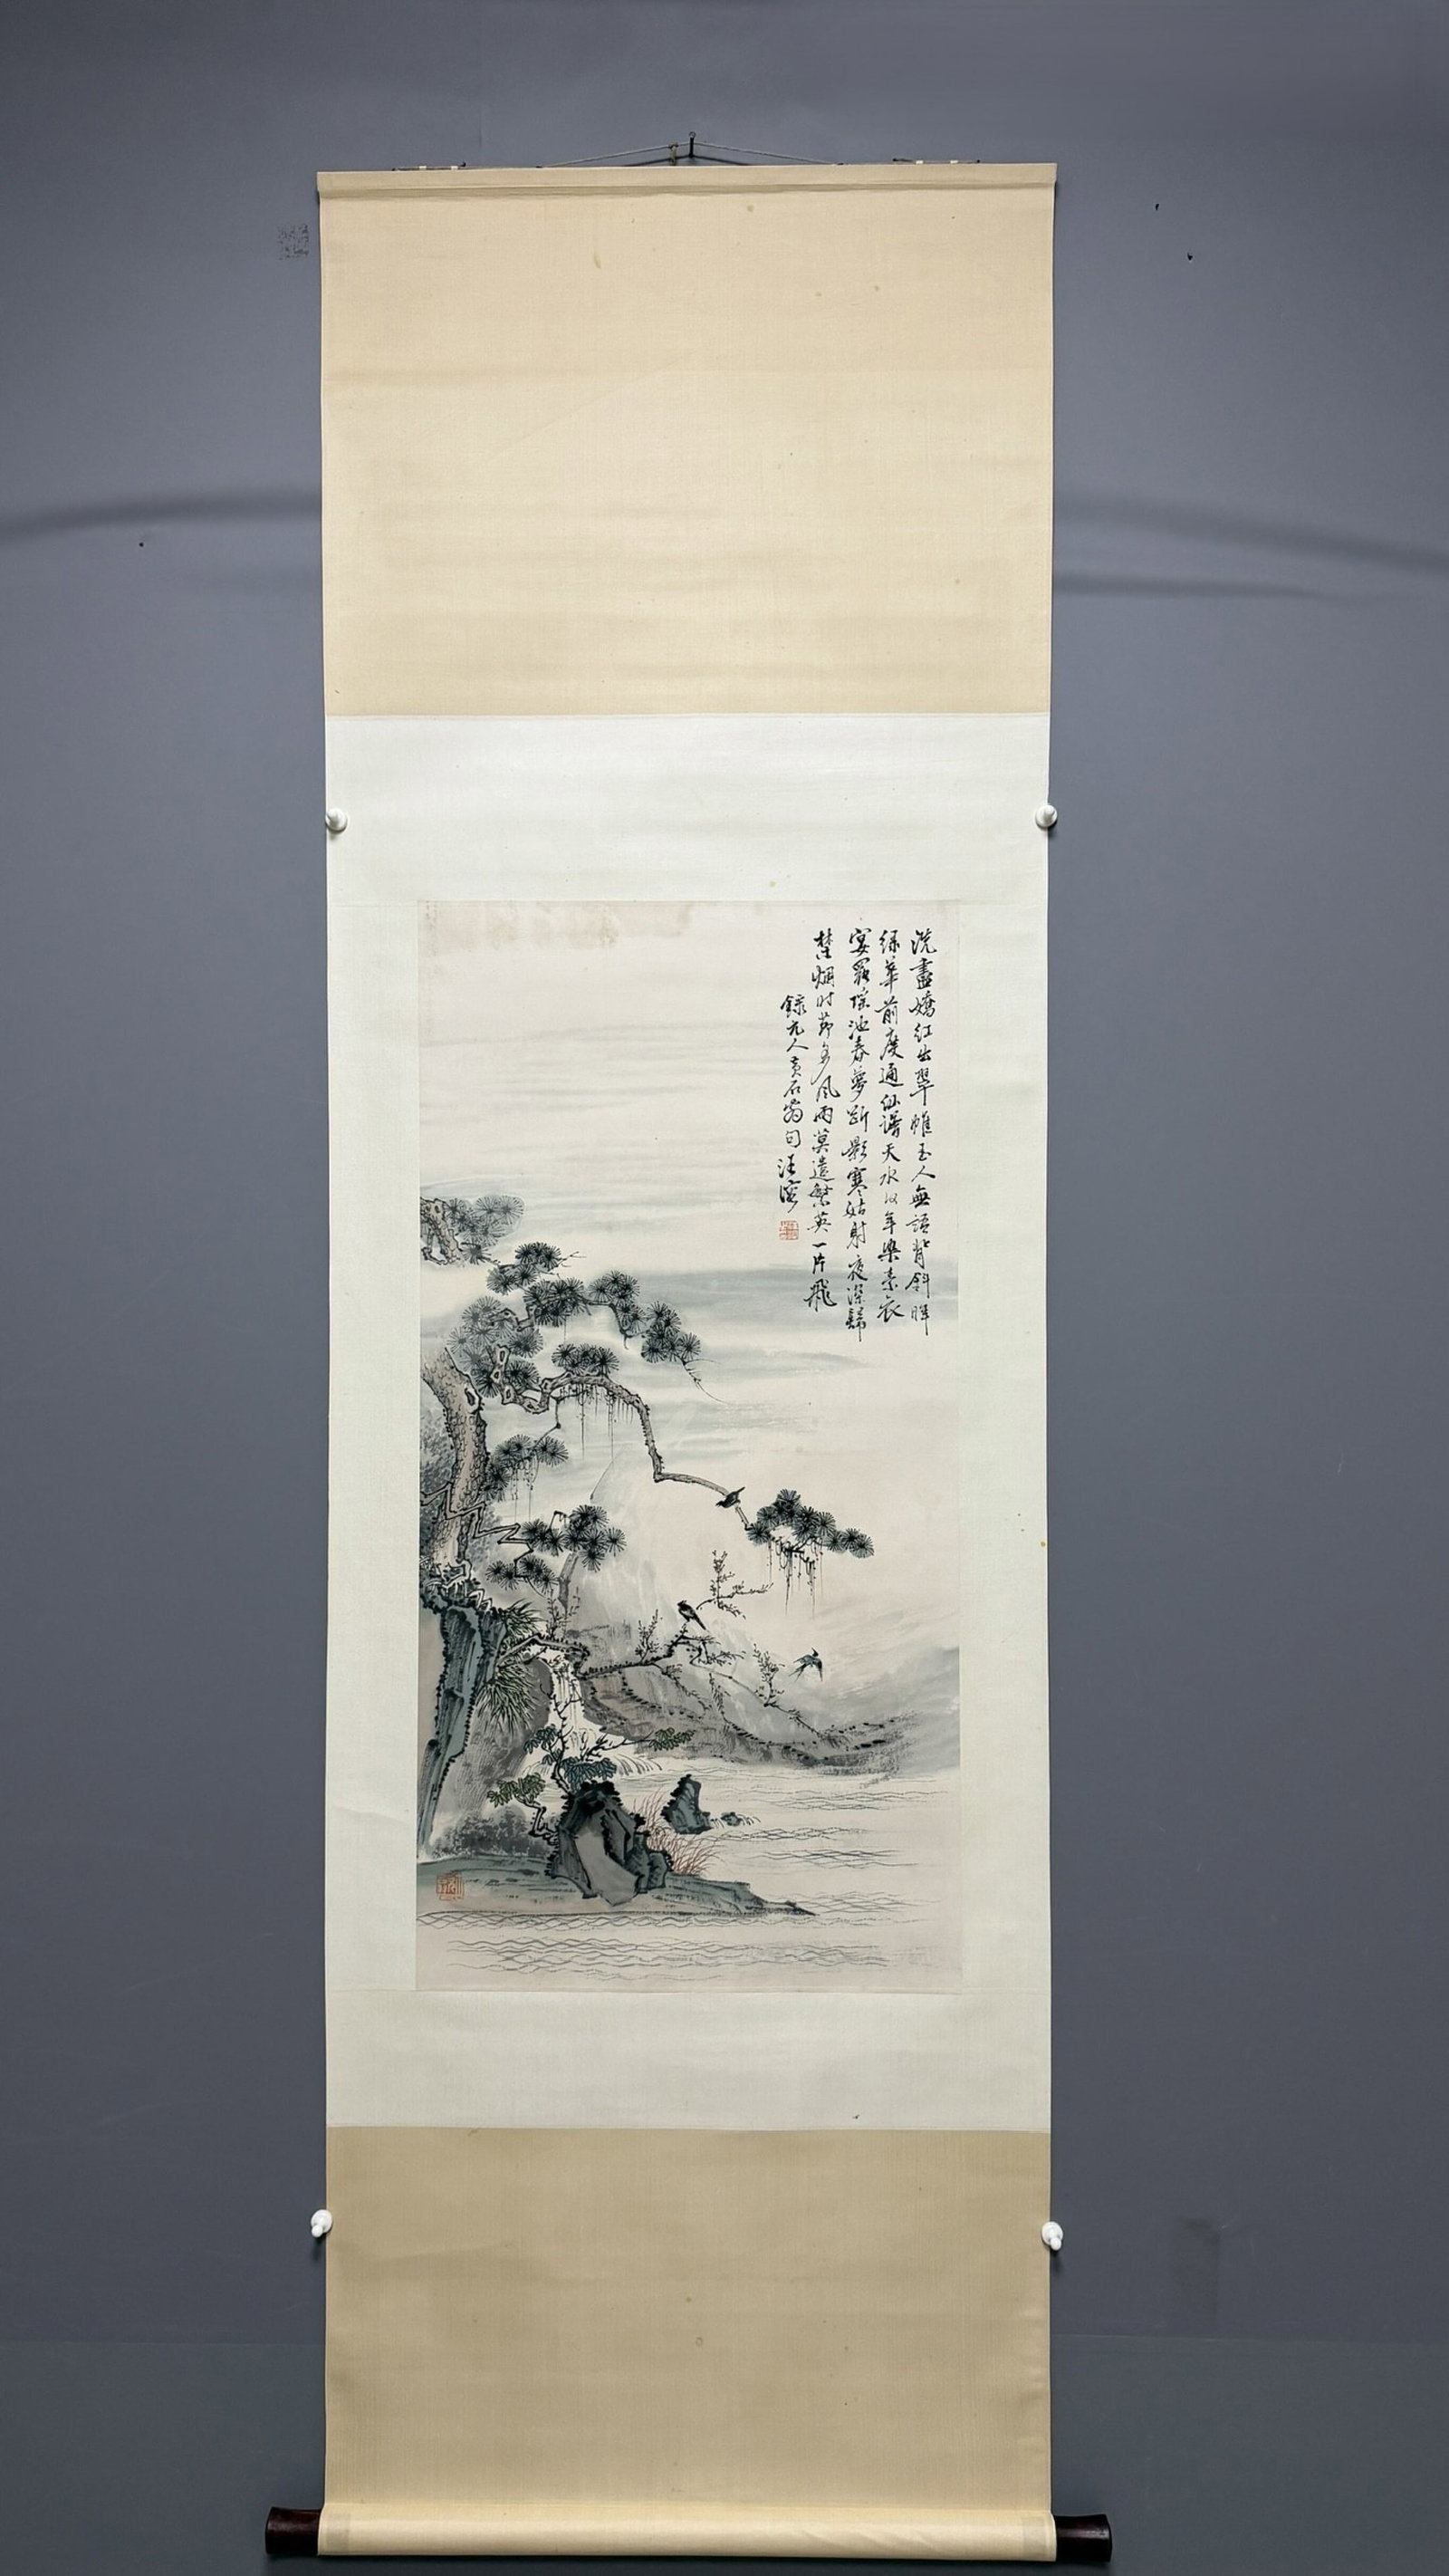 洗盡嬌紅出翠帷玉人無語背斜暉
緑華前度通仙譜天水
年染素衣
宴罷瑤池春夢斷影寒姑射夜深歸
禁烟時節多風雨莫遣繁英一片飛
録元人黃石翁句汪溶